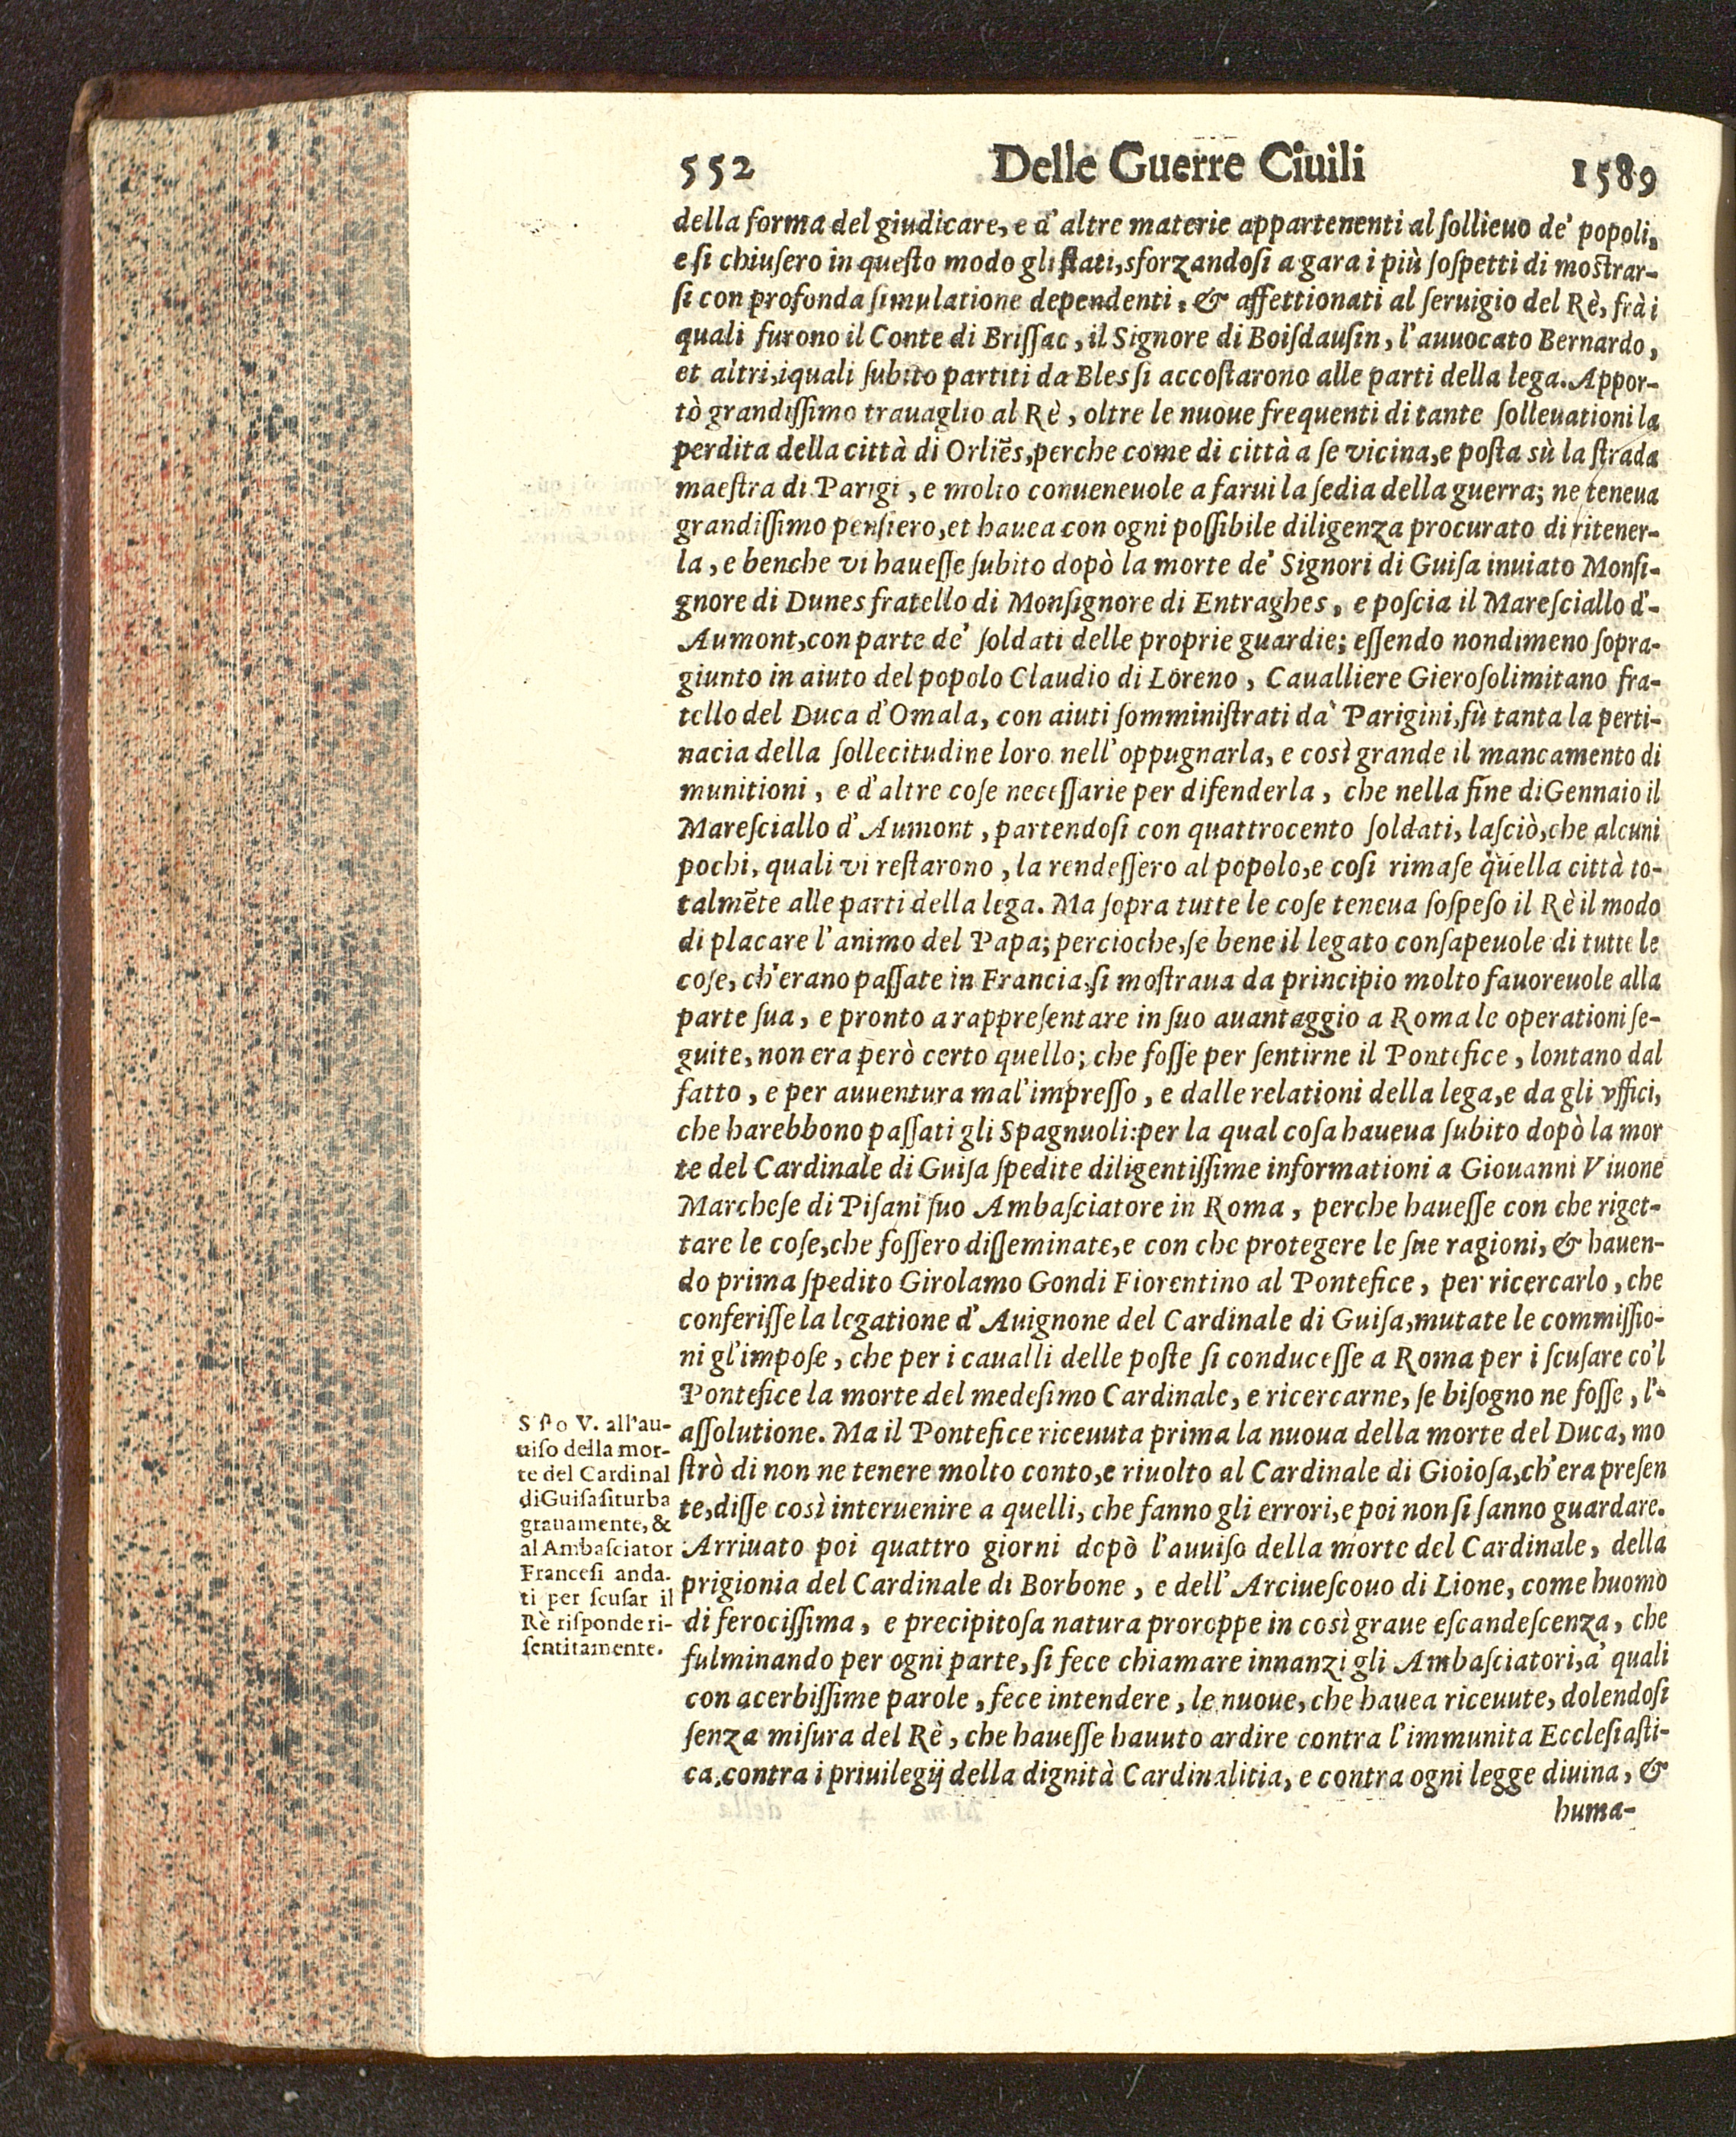 552 Delle Guerre Ciuili 1589
della forma del giudicare, e d'altre materie appartenenti al ſollieuo de' popoli,
e ſi chiuſero in queſto modo gli ſtati, sforzandoſi a gara i più ſoſpetti di moſtrar-
ſi con profonda ſimulatione dependenti, & affettionati al ſeruigio del Rè, frà i
quali furono il Conte di Briſſac, il Signore di Boiſdauſin, l'auuocato Bernardo,
et altri, iquali ſubito partiti da Bles ſi accoſtarono alle parti della lega. Appor-
tò grandiſſimo trauaglio al Rè, oltre le nuoue frequenti di tante ſolleuationi la
perdita della città di Orliẽs, perche come di città a ſe vicina, e poſta sù la ſtrada
maeſtra di Parigi, e molto conueneuole a farui la ſedia della guerra; ne teneua
grandiſſimo penſiero, et hauea con ogni poſſibile diligenza procurato di ritener-
la, e benche vi haueſſe ſubito dopò la morte de' Signori di Guiſa inuiato Monſi-
gnore di Dunes fratello di Monſignore di Entraghes, e poſcia il Mareſciallo d'-
Aumont, con parte de' ſoldati delle proprie guardie; eſſendo nondimeno ſopra-
giunto in aiuto del popolo Claudio di Loreno, Caualliere Gieroſolimitano fra-
tello del Duca d'Omala, con aiuti ſomminiſtrati da' Parigini, fù tanta la perti-
nacia della ſollecitudine loro nell'oppugnarla, e così grande il mancamento di
munitioni, e d'altre coſe neceſſarie per difenderla, che nella fine di Gennaio il
Mareſciallo d'Aumont, partendoſi con quattrocento ſoldati, laſciò, che alcuni
pochi, quali vi reſtarono, la rendeſſero al popolo, e coſi rimaſe quella città to-
talmẽte alle parti della lega. Ma ſopra tutte le coſe teneua ſoſpeſo il Rè il modo
di placare l'animo del Papa; percioche, ſe bene il legato conſapeuole di tutte le
coſe, ch'erano paſſate in Francia, ſi moſtraua da principio molto fauoreuole alla
parte ſua, e pronto a rappreſentare in ſuo auantaggio a Roma le operationi ſe-
guite, non era però certo quello; che foſſe per ſentirne il Pontefice, lontano dal
fatto, e per auuentura mal'impreſſo, e dalle relationi della lega, e da gli vffici,
che harebbono paſſati gli Spagnuoli: per la qual coſa haueua ſubito dopò la mor
te del Cardinale di Guiſa ſpedite diligentiſſime informationi a Giouanni Viuone
Marcheſe di Piſani ſuo Ambaſciatore in Roma, perche haueſſe con che riget-
tare le coſe, che foſſero diſſeminate, e con che protegere le ſue ragioni, & hauen-
do prima ſpedito Girolamo Gondi Fiorentino al Pontefice, per ricercarlo, che
conferiſſe la legatione d'Auignone del Cardinale di Guiſa, mutate le commiſſio-
ni gl'impoſe, che per i caualli delle poſte ſi conduceſſe a Roma per i ſcuſare co'l
Pontefice la morte del medeſimo Cardinale, e ricercarne, ſe biſogno ne foſſe, l'-
aſſolutione. Ma il Pontefice riceuuta prima la nuoua della morte del Duca, mo
ſtrò di non ne tenere molto conto, e riuolto al Cardinale di Gioioſa, ch'era preſen
te, diſſe così interuenire a quelli, che fanno gli errori, e poi non ſi ſanno guardare.
Arriuato poi quattro giorni dopò l'auuiſo della morte del Cardinale, della
prigionia del Cardinale di Borbone, e dell'Arciueſcouo di Lione, come huomo
di ferociſſima, e precipitoſa natura proroppe in così graue eſcandeſcenza, che
fulminando per ogni parte, ſi fece chiamare innanzi gli Ambaſciatori, a' quali
con acerbiſſime parole, fece intendere, le nuoue, che hauea riceuute, dolendoſi
ſenza miſura del Rè, che haueſſe hauuto ardire contra l'immunita Eccleſiaſti-
ca, contra i priuilegij della dignità Cardinalitia, e contra ogni legge diuina, &
huma-
S ſto V. all'au-
uiſo della mor-
te del Cardinal
di Guiſa ſi turba
grauamente, &
al Ambaſciator
Franceſi anda.
ti per ſcuſar il
Rè riſponde ri-
ſentitamente.